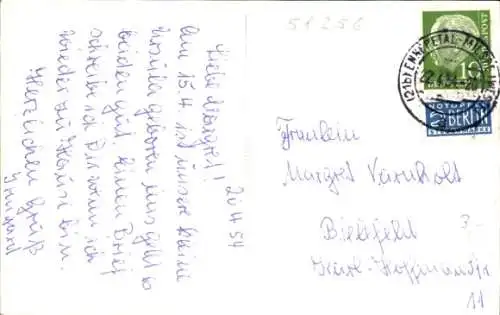 51256
20.4.54
Liebe Margret!
Am 15.4. ist unser kleine
Ursula geboren. Uns geht es
beiden gut. Einen Brief
schreibe ich Dir wenn ich
wieder zu Hause bin.
Herzlichen Gruß
Irmgard
Fräulein
Margret Varnholt
Bielefeld
Karl-Hoffmannstr
11
(21b) ENNEPETAL-MILSPE
10
NOTOPFER
2 BERLIN
STEUERMARKE